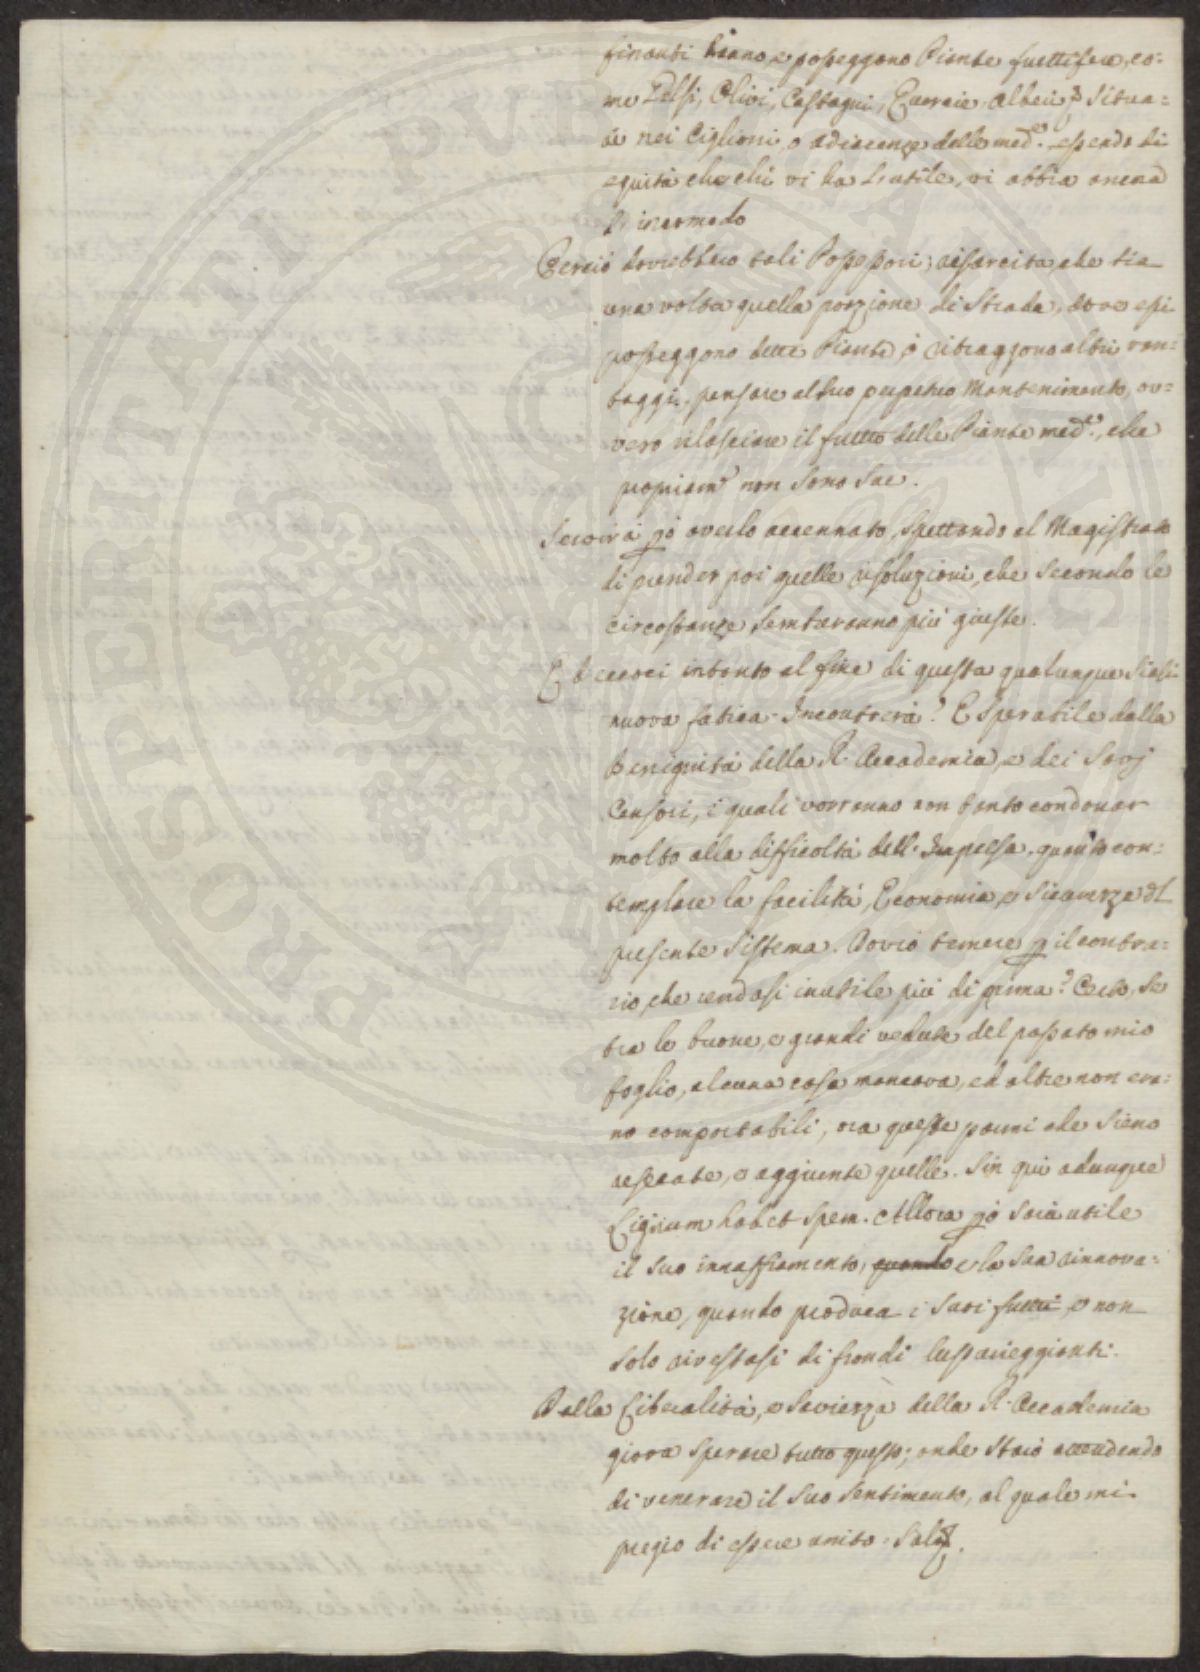 finanti hanno, e posseggono Piante fruttifere, co=
me Gelsi, Olivi, Castagni, Querci Alberi & situa=
te nei Ciglioni, o adiacenze delle med.e, essendo di
equità che chi vi ha l'utile, vi abbia ancora
l'incomodo
Perciò dovrebbero tali Possessori, risarcita che sia
una volta quella porzione di Strada, dove essi
posseggono dette Piante, o ritraggono altri van=
taggi, pensare al suo perpetuo Mantenimento, ov=
vero rilasciare il frutto delle Piante med.e, che
propriam.e non sono sue.
Servirà però averlo accennato, spettando al Magistrato
di prender poi quelle risoluzioni, che secondo le
circostanze sembreranno più giuste.
Ed eccoci intanto al fine di questa qualunque siasi
nuova fatica. Incontrerà? È sperabile dalla
benignità della R. Accademia, e dei Savj
Censori, i quali vorranno non tanto condonar
molto alla difficoltà dell'Impresa, quanto con=
templare la facilità, Economia, e sicurezza del
presente sistema. Dovrò temere per il contra=
rio, che rendasi inutile più di prima? Certo, se
tra le buone, e grandi vedute del passato mio
foglio, alcuna cosa mancava, ed altre non era=
no comportabili, ora queste parmi che sieno
resecate, e aggiunte quelle. Sin qui adunque
Lignum habet spem. Allora però sarà utile
il suo innaffiamento, quando e la sua rinnova=
zione, quando produca i suoi frutti, e non
solo rivestasi di frondi lussureggianti.
Dalla Liberalità, e Saviezza della R. Accademia
giova sperare tutto questo; onde starò attendendo
di venerare il suo sentimento, al quale mi
pregio di essere unito. Salv